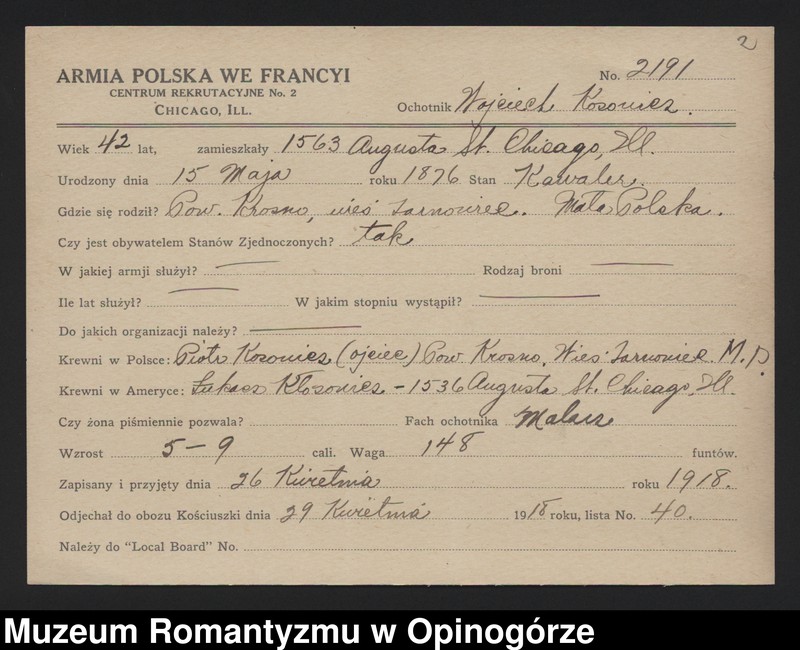 2
ARMIA POLSKA WE FRANCYI
CENTRUM REKRUTACYJNE No. 2
CHICAGO, ILL.
No. 2191
Ochotnik Wojciech Kosowicz.
Wiek 42 lat, zamieszkały 1563 Augusta St. Chicago, Ill.
Urodzony dnia 15 Maja roku 1876 Stan Kawaler.
Gdzie się rodził? Pow. Krosno, wieś Tarnowiec. Mała Polska.
Czy jest obywatelem Stanów Zjednoczonych? tak
W jakiej armji służył? — Rodzaj broni —
Ile lat służył? — W jakim stopniu wystąpił? —
Do jakich organizacji należy? —
Krewni w Polsce: Piotr Kosowicz (ojciec) Pow Krosno, Wieś Tarnowiec. M.P.
Krewni w Ameryce: Łukasz Kłosowicz - 1536 Augusta St. Chicago, Ill.
Czy żona piśmiennie pozwala? Fach ochotnika Malarz
Wzrost 5-9 cali. Waga 148 funtów.
Zapisany i przyjęty dnia 26 Kwietnia roku 1918.
Odjechał do obozu Kościuszki dnia 29 Kwietnia 1918 roku, lista No. 40.
Należy do "Local Board" No.
Muzeum Romantyzmu w Opinogórze